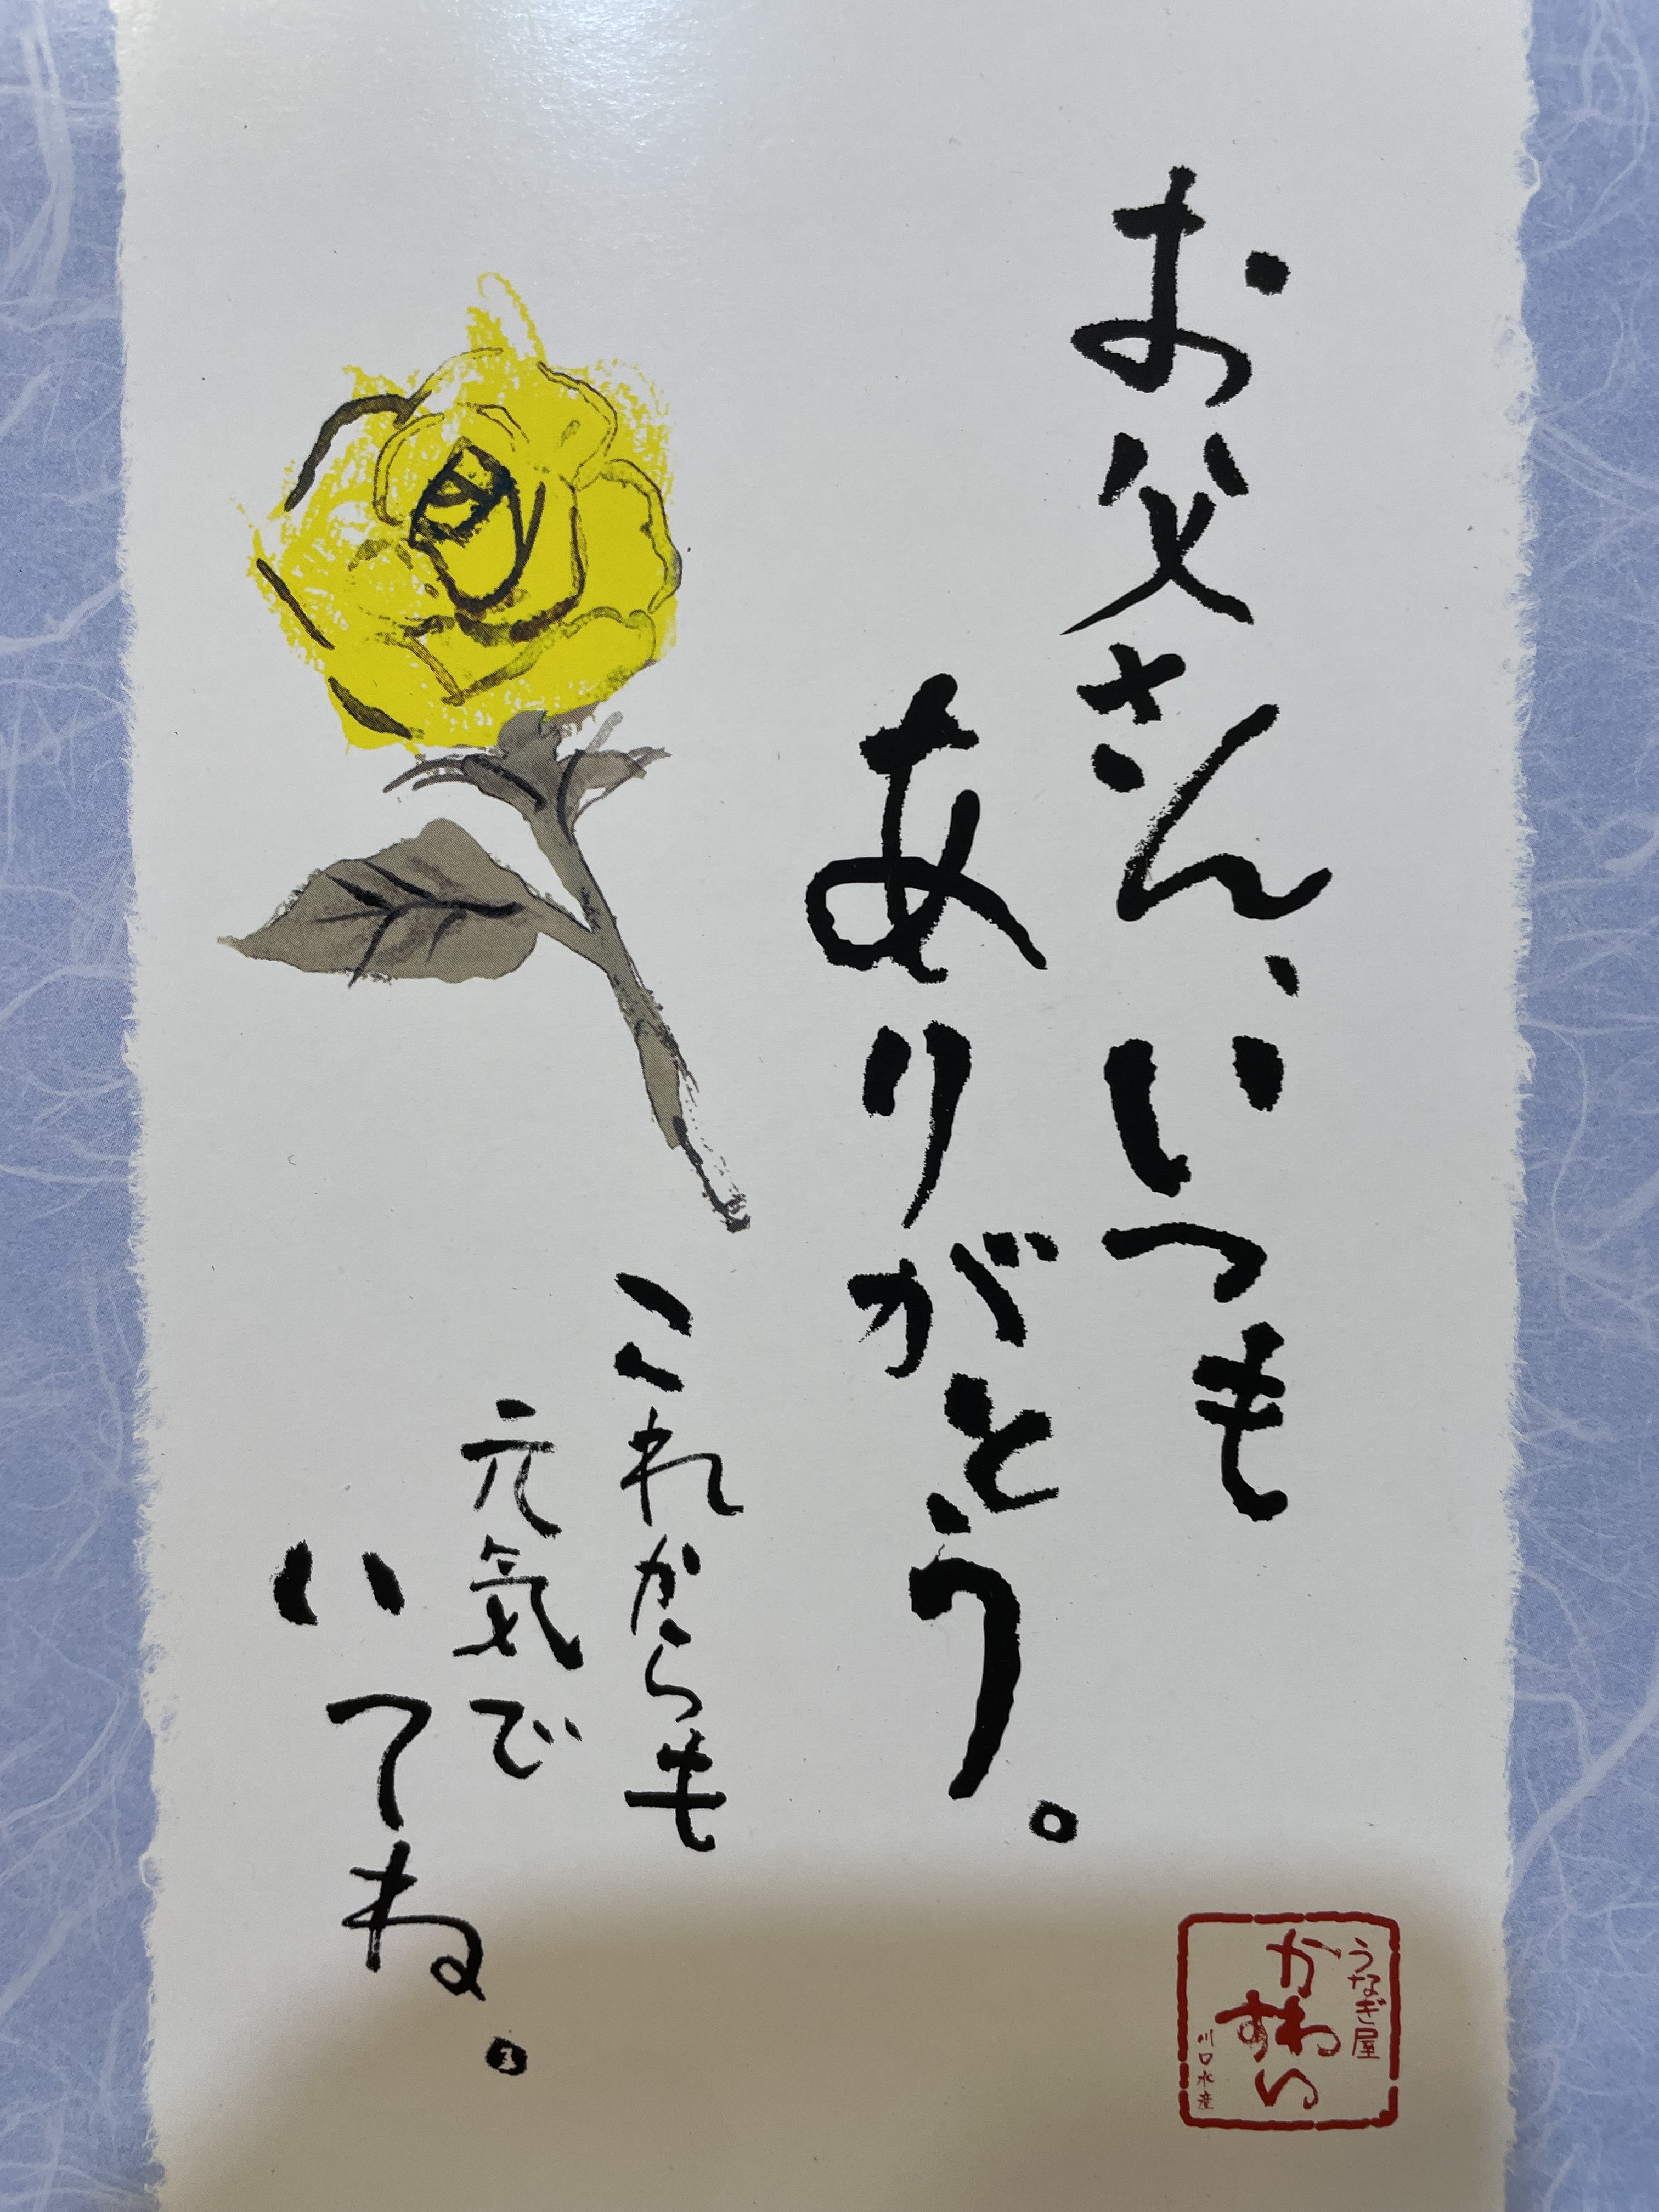 お父さん、いつも
ありがとう。
これからも
元気で
いてね。
うなぎ屋
かわすい
川口水産